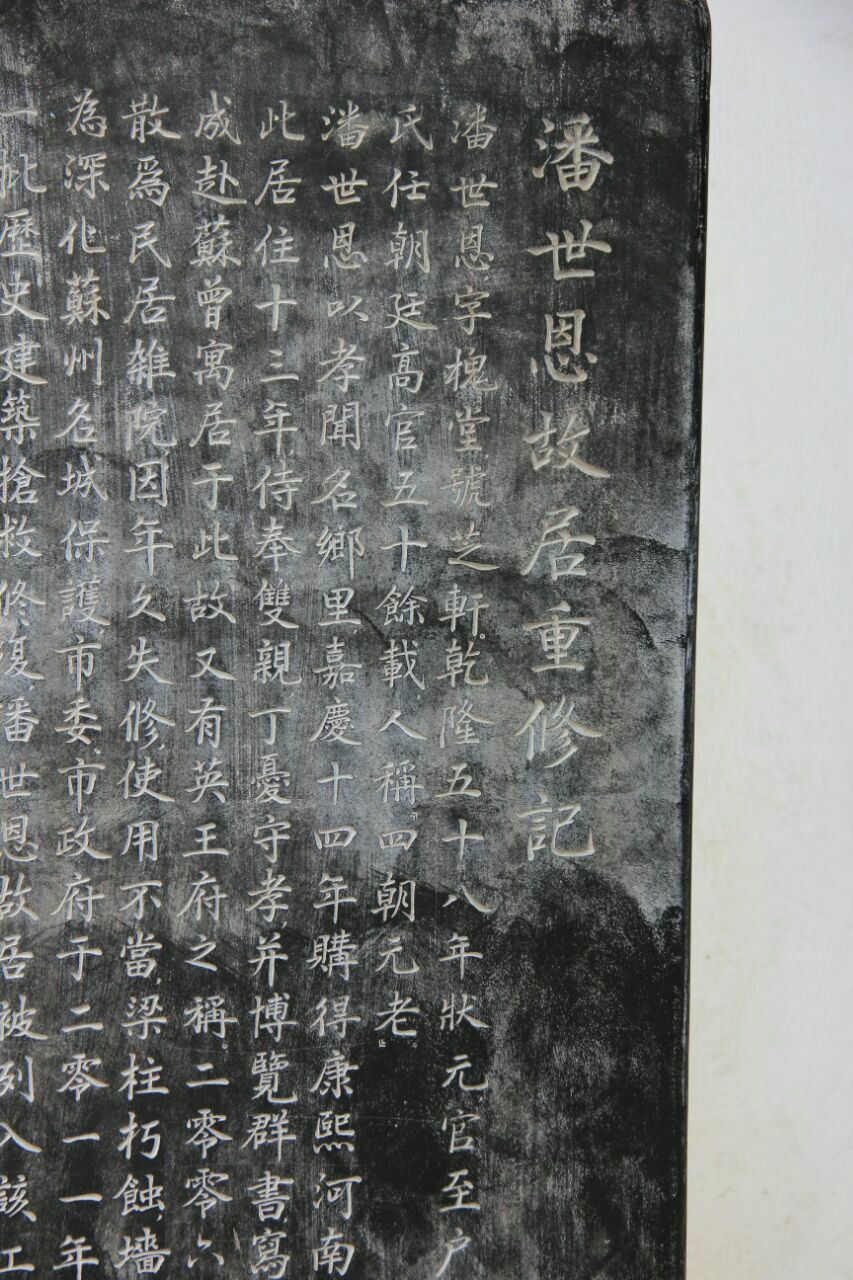 潘世恩故居重修記
潘世恩字槐堂號芝軒。乾隆五十八年狀元官至户
氏任朝廷高官五十餘載人稱“四朝元老”
潘世恩以孝聞名鄉里嘉慶十四年購得康熙河南
此居住十三年侍奉雙親丁憂守孝并博覽群書寫
成赴蘇曾寓居于此故又有英王府之稱。二零零六
散爲民居雜院因年久失修使用不當梁柱朽蝕墻
為深化蘇州名城保護市委市政府于二零一一年
一批歷史建築搶救修復潘世恩故居被列入該工